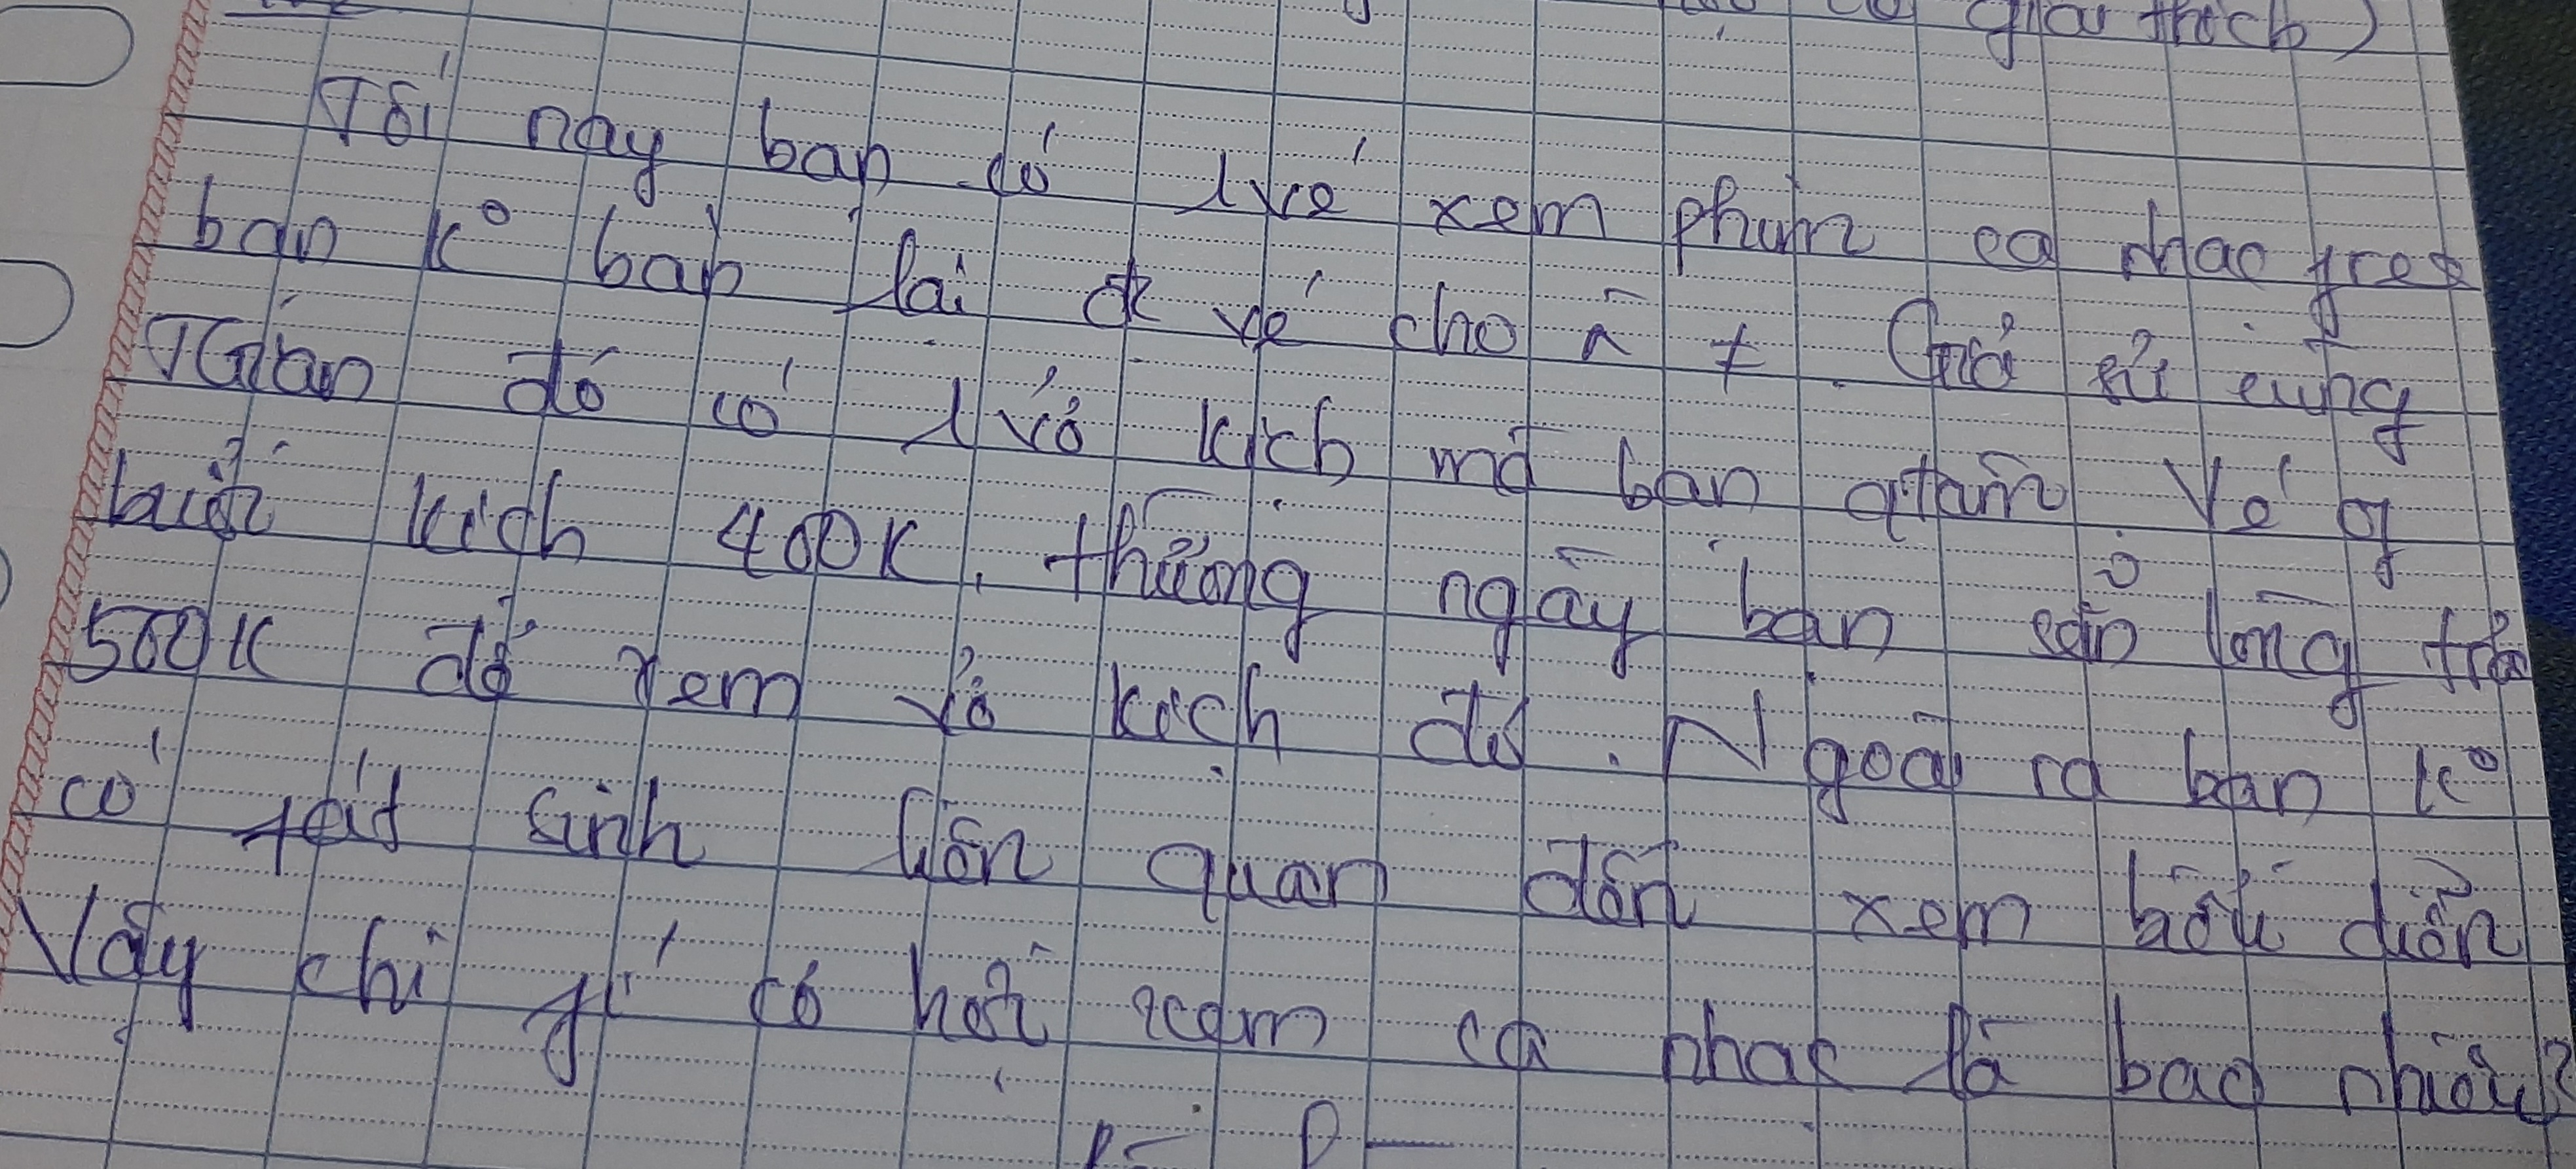 giải thích)
Tối nay bạn có 1 vé xem phim ca nhạc free
bạn k° bán lại đc vé cho ≠. Giả sử cùng
TGian đó có 1 vở kịch mà bạn qtâm. Vé of
buổi kịch 400K, thường ngày bạn sẵn lòng trả
500K để xem vở kịch đó. Ngoài ra bạn k°
có phát sinh liên quan đến xem biểu diễn
Vậy chi phí cơ hội xem ca nhạc là bao nhiêu?